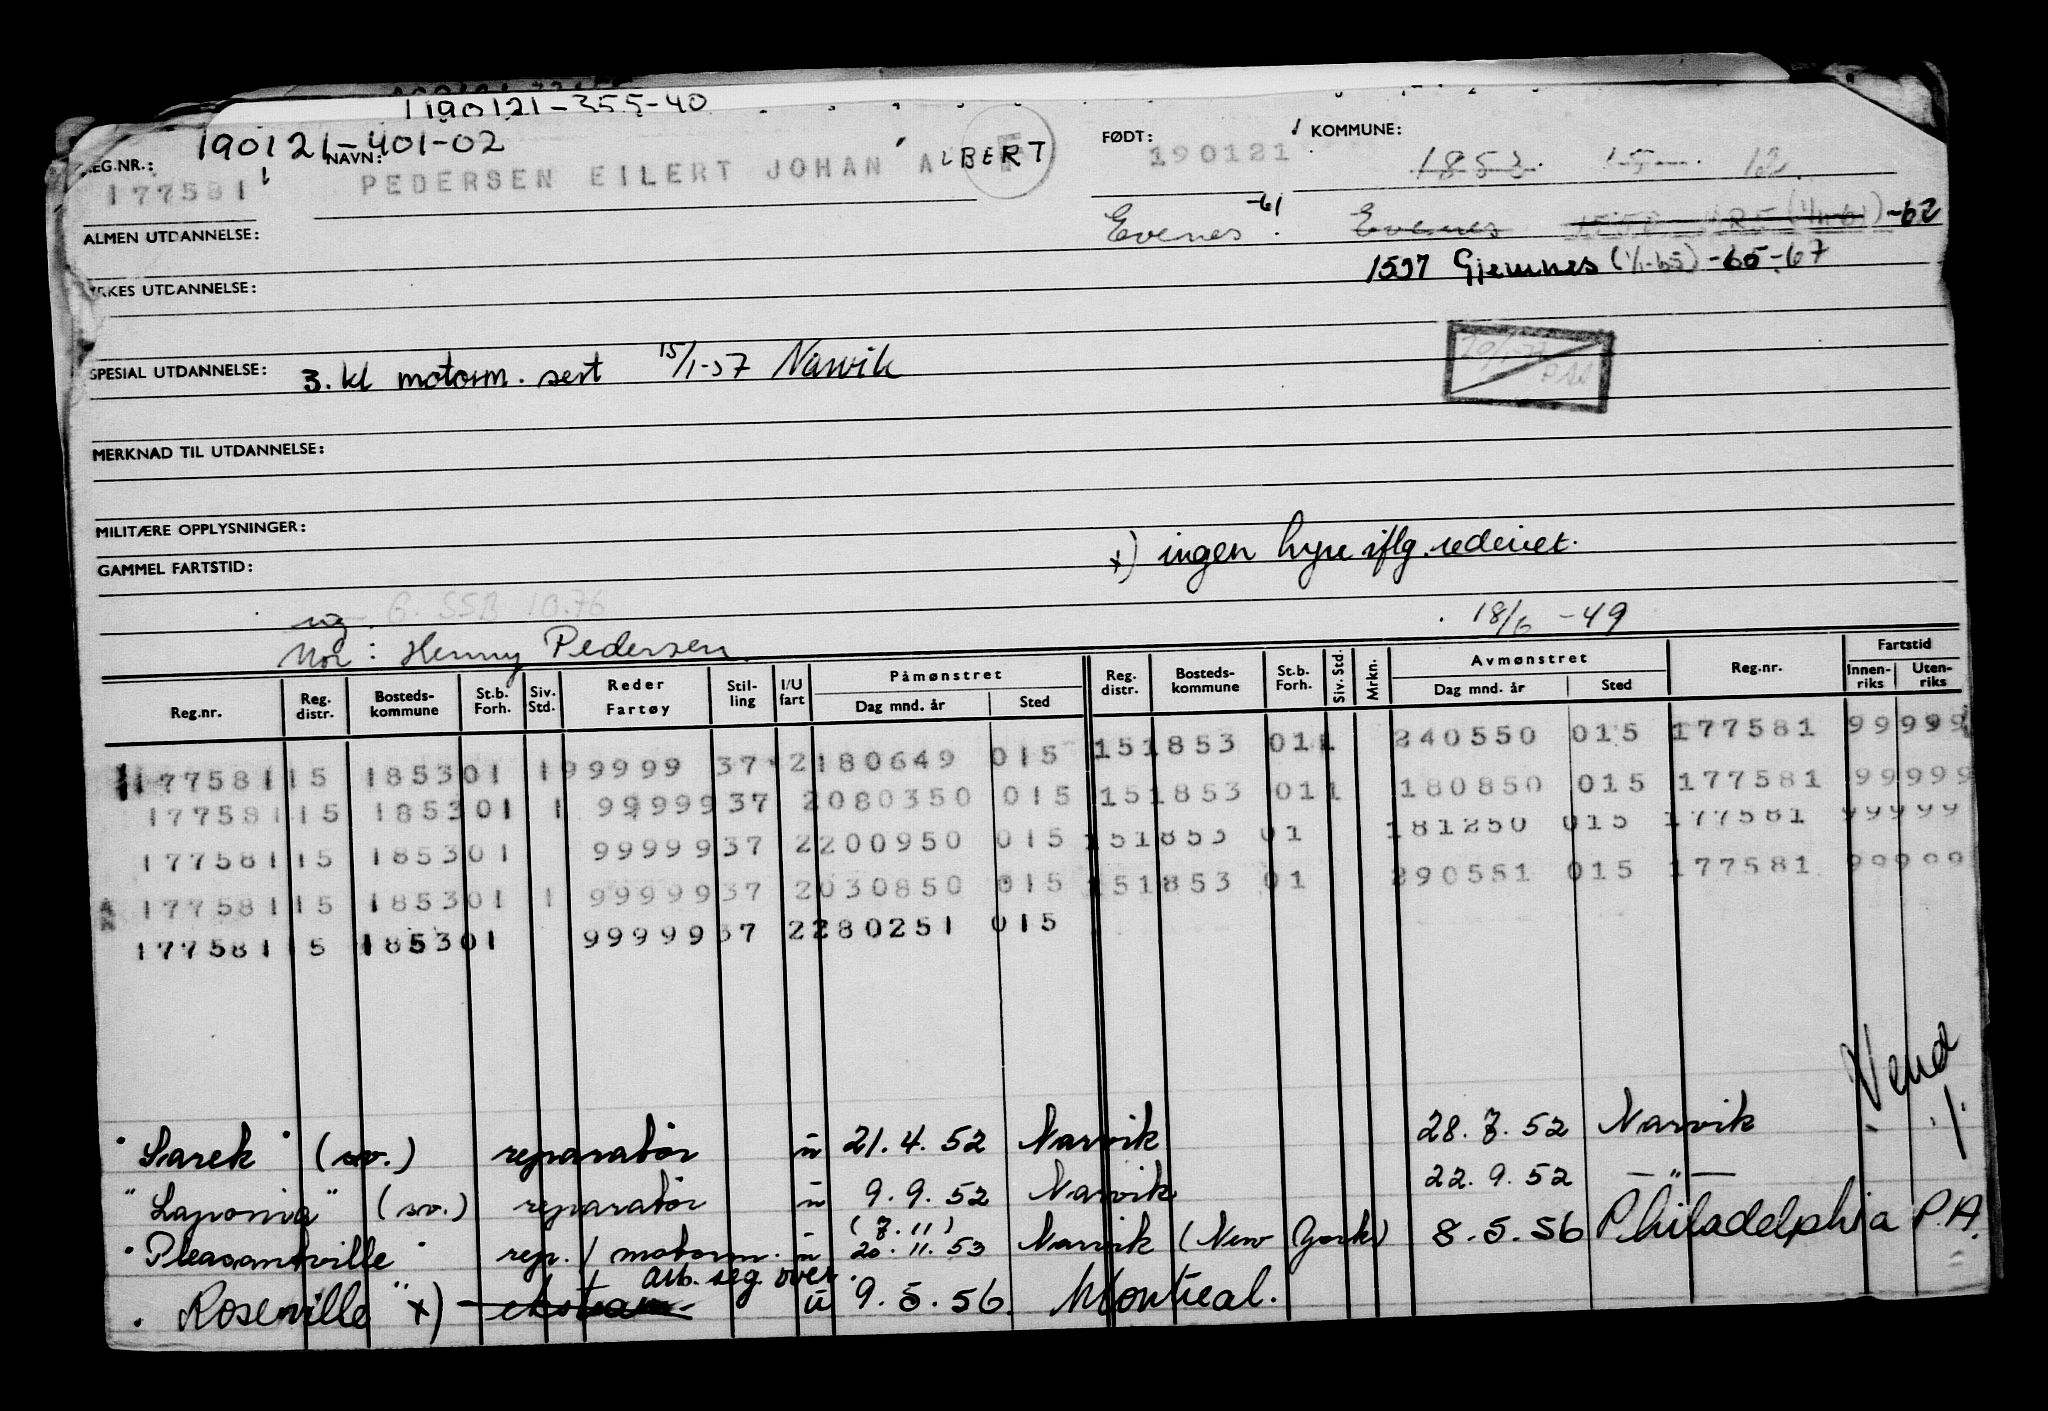 190121-355-40
190121-401-02
REG.NR.: NAVN: FØDT: KOMMUNE:
177581 PEDERSEN EILERT JOHAN ALBERT F 190121 1853 12
ALMEN UTDANNELSE: Evenes -61 Evenes (1/1-61) -62
YRKES UTDANNELSE: 1557 Gjemnes (1/1-65) -65-67
SPESIAL UTDANNELSE: 3. kl motorm. sert 15/1-57 Narvik
MERKNAD TIL UTDANNELSE:
MILITÆRE OPPLYSNINGER:
x) ingen hyre iflg. rederiet.
GAMMEL FARTSTID:
ug. G. SSB 10.76
Mor: Henny Pedersen 18/6 -49
Reg.nr. Reg. distr. Bosteds-kommune St.b. Forh. Siv. Std. Reder Fartøy Stil-ling I/U fart Påmønstret Dag mnd. år Sted Reg. distr. Bosteds-kommune St.b. Forh. Siv. Std. Mrkn. Avmønstret Dag mnd. år Sted Reg.nr. Fartstid Innen-riks Uten-riks
177581 15 1853 01 1 99999 37 2 180649 015 15 1853 01 1 240550 015 177581 99999
177581 15 1853 01 1 99999 37 2 080350 015 15 1853 01 1 180850 015 177581 99999
177581 15 1853 01 99999 37 2 200950 015 15 1853 01 181250 015 177581 99999
177581 15 1853 01 1 99999 37 2 030850 015 15 1853 01 290551 015 177581 99999
177581 15 1853 01 99999 37 2 280251 015
Vend ./.
"Sarek" (sv.) reparatør u 21.4.52 Narvik 28.7.52 Narvik
"Laponia" (sv.) reparatør u 9.9.52 Narvik 22.9.52 — " —
"Pleasantville" rep./motorm. u (7.11) 20.11.53 Narvik (New York) 8.5.56 Philadelphia P.A.
"Roseville" x) ekstram. arb. seg over. u 9.5.56. Montreal.